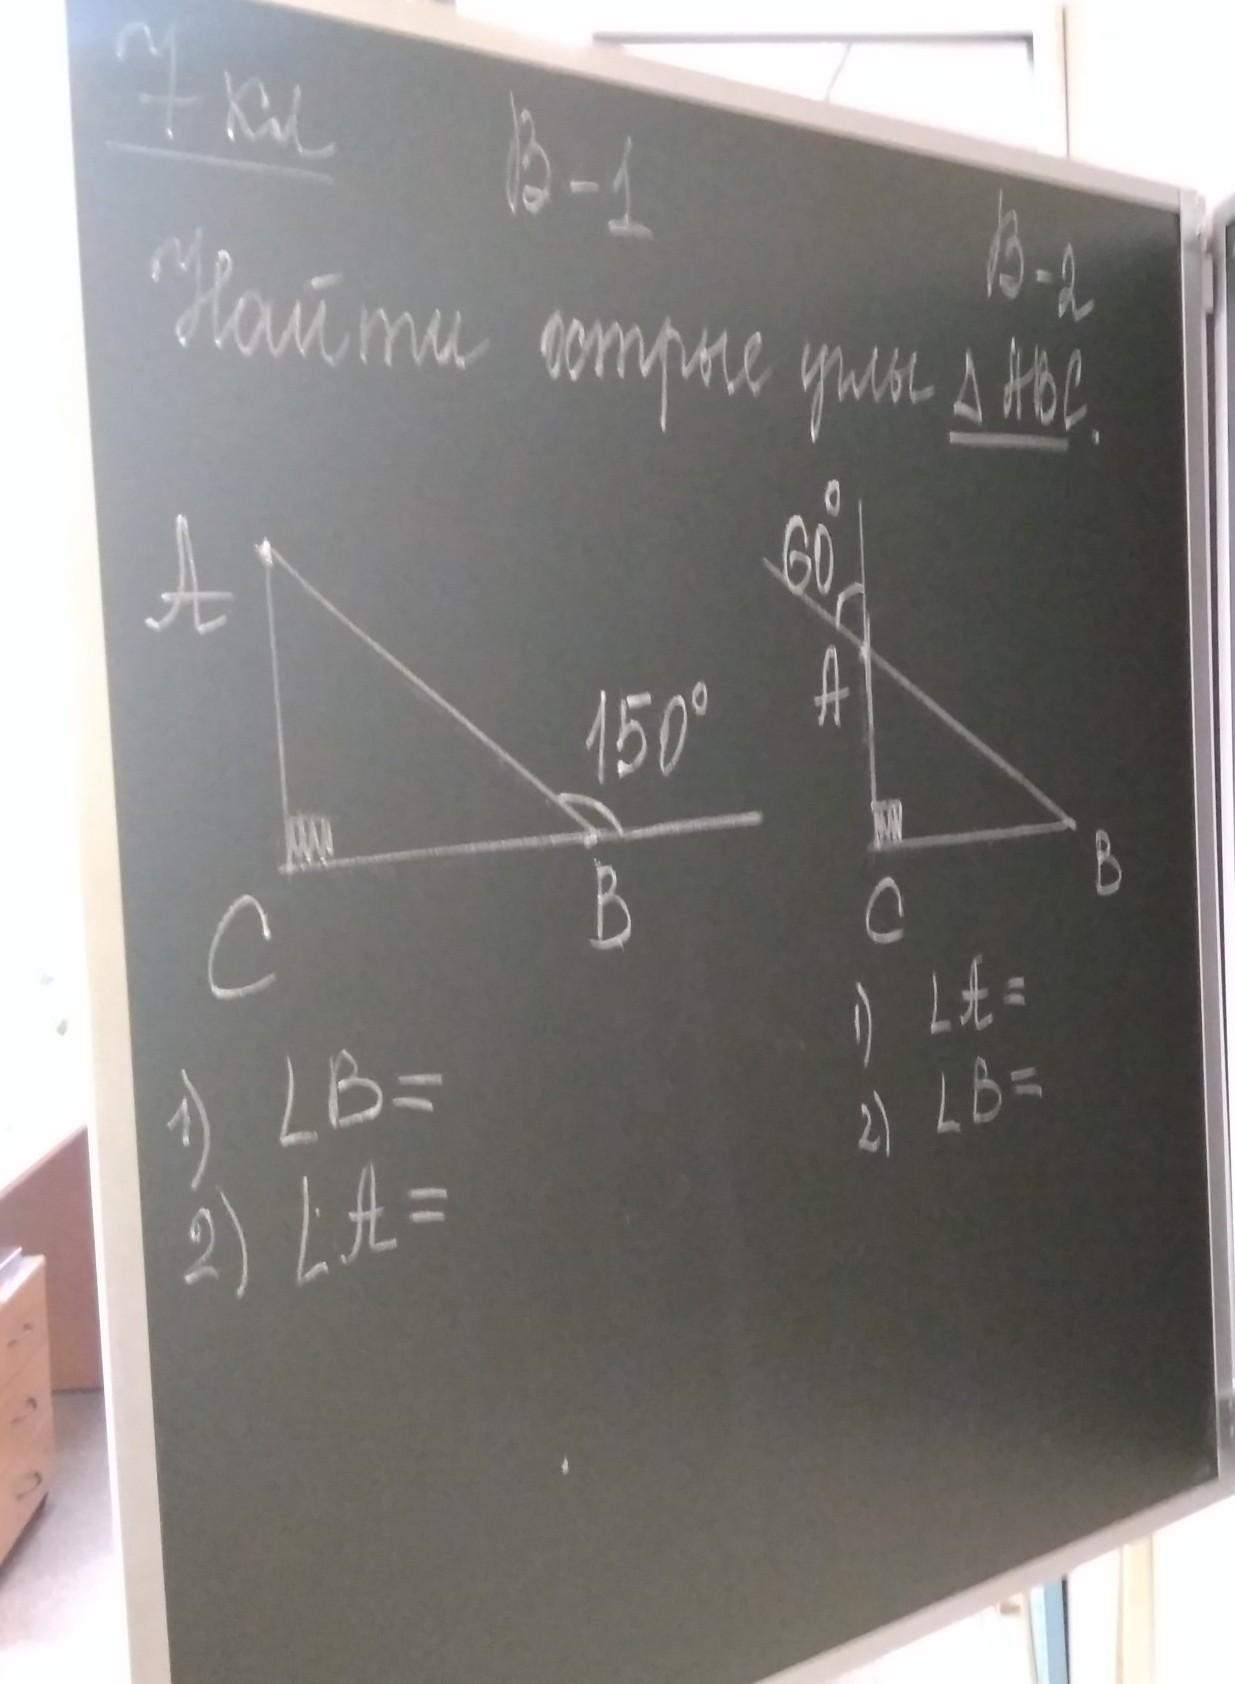 7 кл
В-1
В-2
Найти острые углы Δ ABC.
A
150°
C
B
60°
A
C
B
1) ∠B=
2) ∠A=
1) ∠A=
2) ∠B=